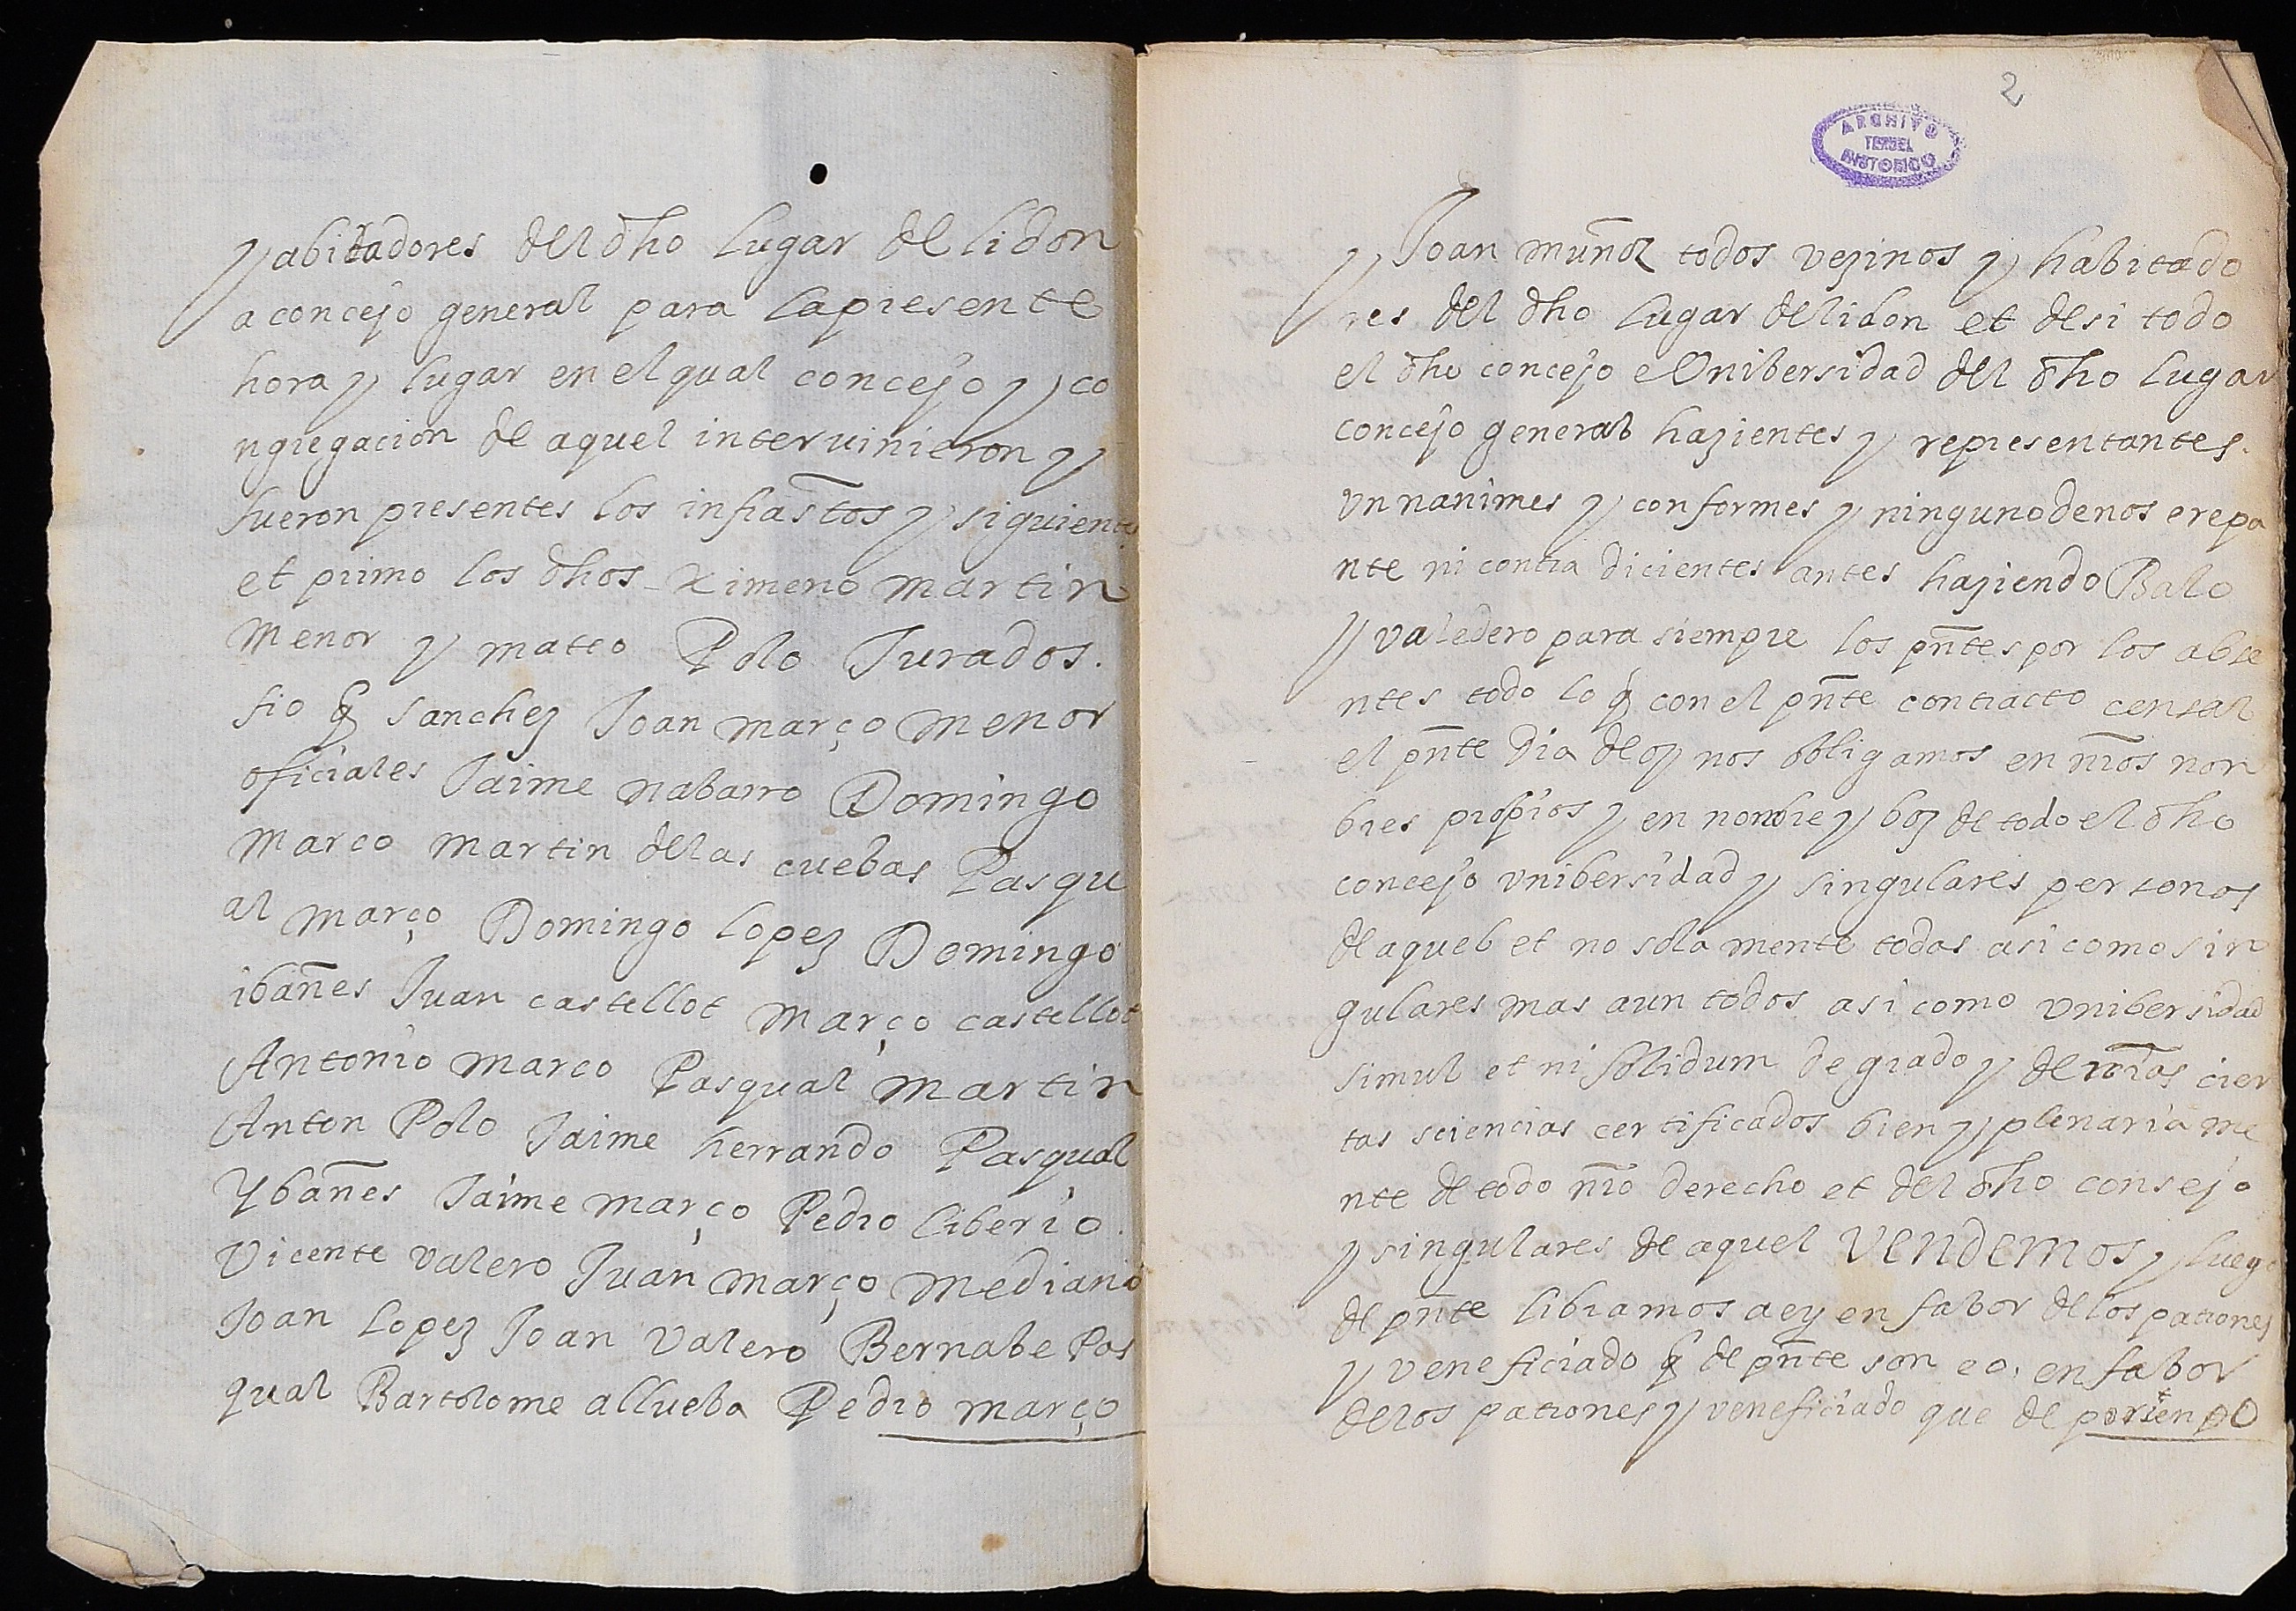 y abitadores del dho lugar de lidon
a concejo general para la presente
hora y lugar en el qual concejo y co
ngregacion de aquel intervinieron y
fueron presentes los infrastos y siguientes
et primo los dhos ximeno martin
menor y mateo Polo Jurados.
sio q sanchez Joan março menor
oficiales Jaime nabarro Domingo
marco martin de las cuebas Pasqu
al março Domingo lopez Domingo
ibañes Juan castellot março castellot
Antonio marco Pasqual martin
Anton Polo Jaime herrando Pasqual
Ybañes Jaime março Pedro liberio.
Vicente valero Juan março mediano
Joan lopez Joan valero Bernabe Pas
qual Bartolome allueba Pedro março
2
ARCHIVO
TERUEL
HISTORICO
y Joan muñoz todos vezinos y habitado
res del dho lugar de lidon et de si todo
el dho concejo e Unibersidad del dho lugar
concejo general hazientes y representantes.
vnnanimes y conformes y ninguno de nos erepa
nte ni contra dicientes antes haziendo Balo
y valedero para siempre los pñtes por los abse
ntes todo lo q con el pñte contracto censal
el pñte dia de oy nos obligamos en nros non
bres propios y en nombre y boz de todo el dho
concejo vnibersidad y singulares personas
de aquel et no sola mente todos asi como sin
gulares mas aun todos asi como vnibersidad
simul et ni solidum de grado y de nras cier
tas sciencias certificados bien y plenaria me
nte de todo nro derecho et del dho consejo
y singulares de aquel VENDEMOS y luego
de pñte libramos a ey en fabor de los patrones
y veneficiado q de pñte son eo. en fabor
de los patrones y veneficiado que de por tienpo